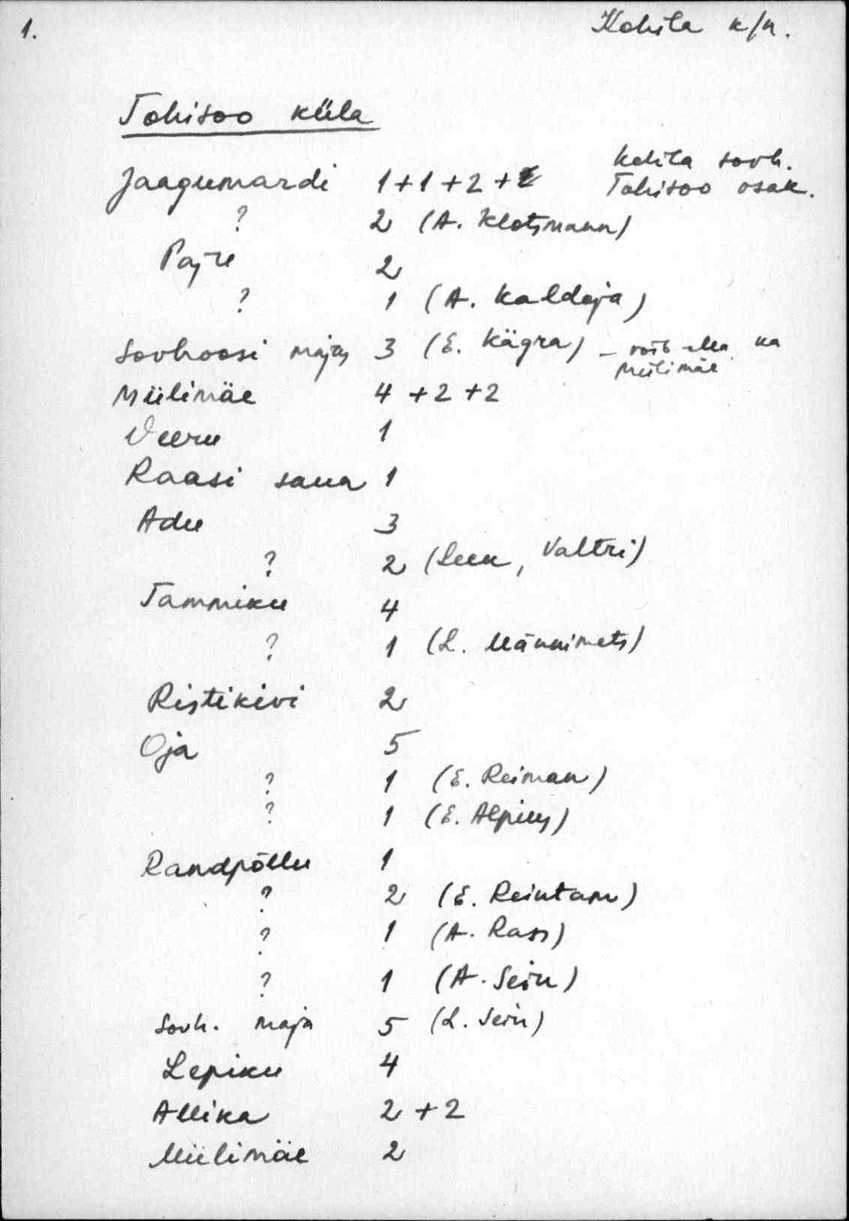 1.
Kohila k/n.
Tohisoo küla
Kohila sovh.
Tohisoo osak.
Jaagumardi 1+1+2+
? 2 (A. Klotsmann)
Pajre 2
? 1 (A. Kaldoja)
Sovhoosi maja 3 (E. Kägra) – võib olla ka
Miilimäe
Miilimäe 4 +2 +2
Veeru 1
Raasi saua 1
Adu 3
? 2 (Leek, Valtri)
Tammiku 4
? 1 (L. Männimets)
Ristikivi 2
Oja 5
? 1 (E. Reiman)
? 1 (E. Alpius)
Randpõllu 1
? 2 (E. Reintam)
? 1 (A. Rass)
? 1 (A. Sein)
Sovh. maja 5 (L. Sein)
Lepiku 4
Allika 2 + 2
Miilimäe 2